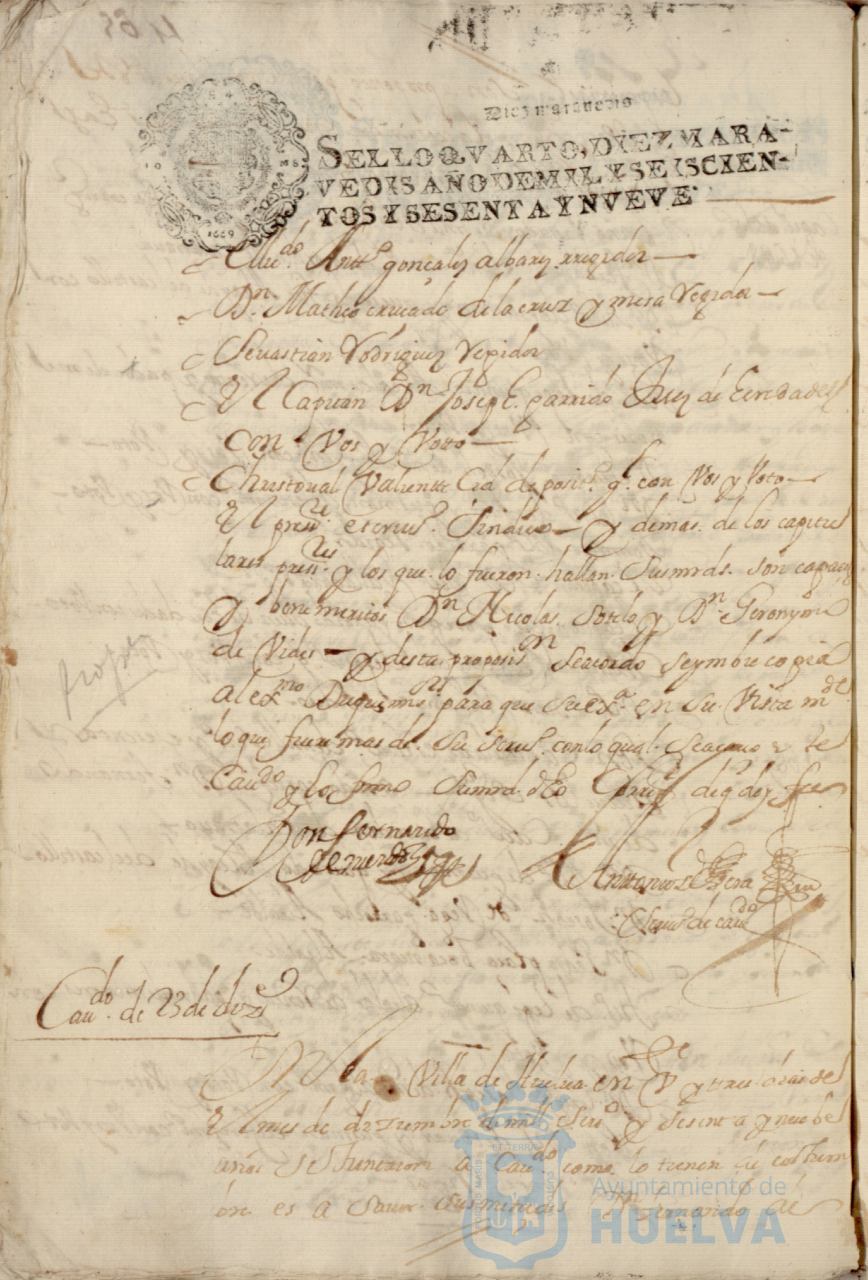 Diez maravedis
SELLO QVARTO, DIEZ MARA-
VEDIS AÑO DE MIL Y SEISCIEN-
TOS Y SESENTA Y NVEVE
1669
Antt.º gonçales albarez rregidor
Dn. Matheo cruçado de la cruz y mesa Regidor
Sevastian Rodriguez Regidor
El Capitan Dn Josepe garrido Juez de
con Vos y Votto
Christoval Valiente Cid deposit.º g.l con Vos y Voto
El press.te escriv.º Sindico y demas de los capitu
lares pres.tes y los que lo fueron hallan Sus mrds. son capaces
y benemeritos Dn Nicolas Sotelo y Dn Geronymo
de Vides y desta proposis.on se acordo se ymbie copia
al ex.mo Duque mi s.or para que su ex.a en su Vista m.de
lo que fuere mas de su serv.º con lo qual se acavo este
Cav.do y lo firmo Su mrd. de q doy fee
Don fernando
Antonio de
Scriv.º de cav.do
Cau.do de 23 de diz.e
En la Villa de Huelva en V.te y tres dias del
El mes de diziembre de mill Seis.º y sesenta y nuebe
años se Juntaron a Cau.do como lo tienen de costum
bre es a saver sus mercedes Dn fernando de
Ayuntamiento de
HUELVA